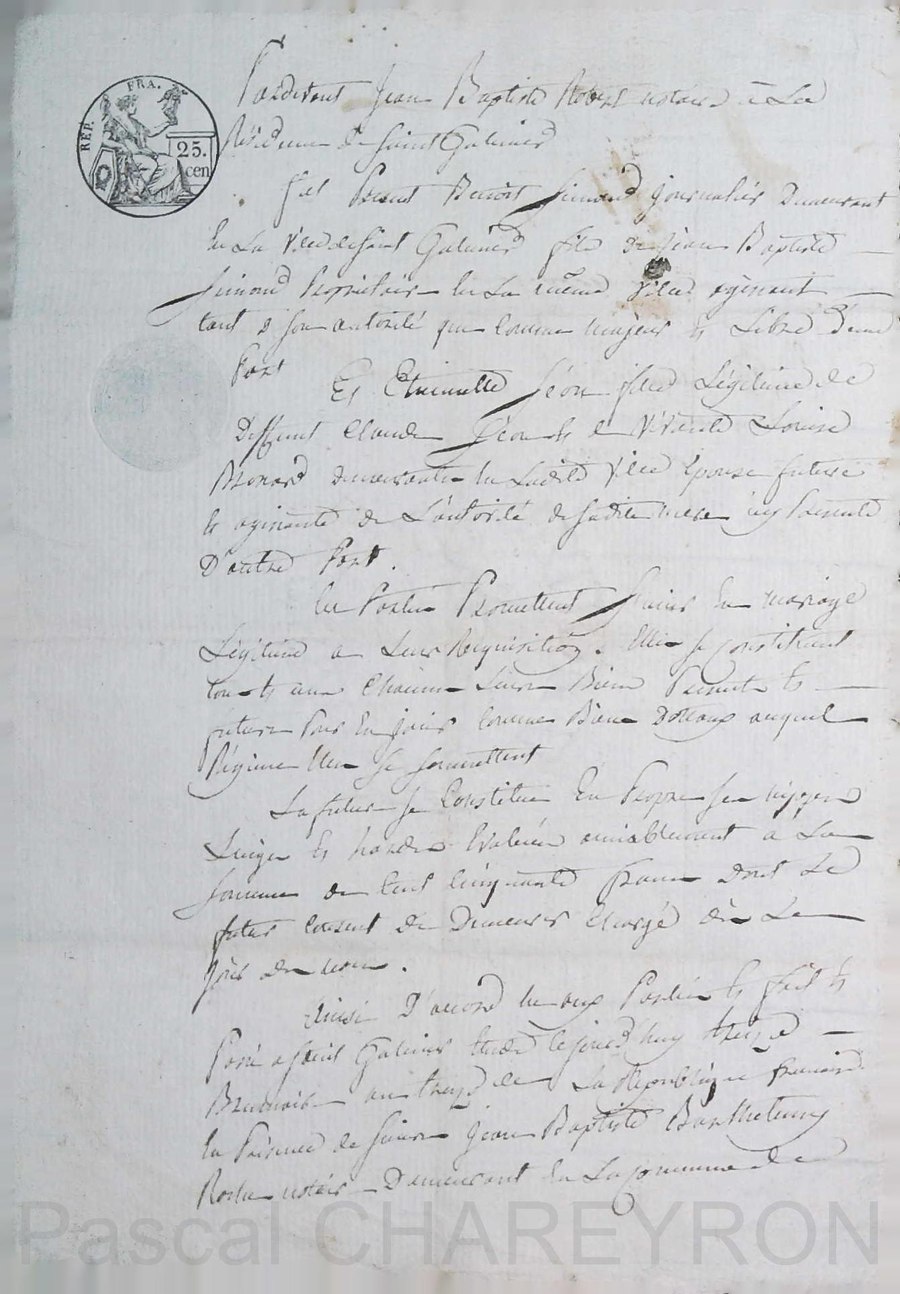 REP. FRA.
25.
cen
Pardevant Jean Baptiste Robert notaire à La
Résidence de Saint Galmier
fut Présent Benoit Simond journalier Demeurant
En La ville de Saint Galmier fils de Jean Baptiste
Simond Propriétaire en La même ville agissant
tant de son autorité que Comme majeur et Libre D'une
Part
Et Etiennette Jéon fille Légitime de
Deffunt Claude Jéon et de vivante Louise
demeurante en Ladite ville Epouse future
et agissante de L'autorité de sadite mere icy Présente
D'autre Part.
les Parties Promettent S'unir En mariage
Légitime a Leur Requisition. Elles se Constituent
tous et un Chacun Leurs Biens Présents et
futurs Pour En jouir Comme Biens Dotaux auquel
Régime Elles se soumettent
La future se Constitue En Propre ses nippes
Linges et hardes Evalués amiablement a La
somme de Cent Cinquante francs Dont Le
futur Consent de Demeurer Chargé dès Le
jour des noces.
Ainsi D'accord Les aux Parties et fait et
Passé a Saint Galmier Etude Cejourd'huy treize
Brumaire an treize de La République francaise
En Présence de Sieurs Jean Baptiste Barthelemy
notaire Demeurant En La Commune de
Pascal CHAREYRON